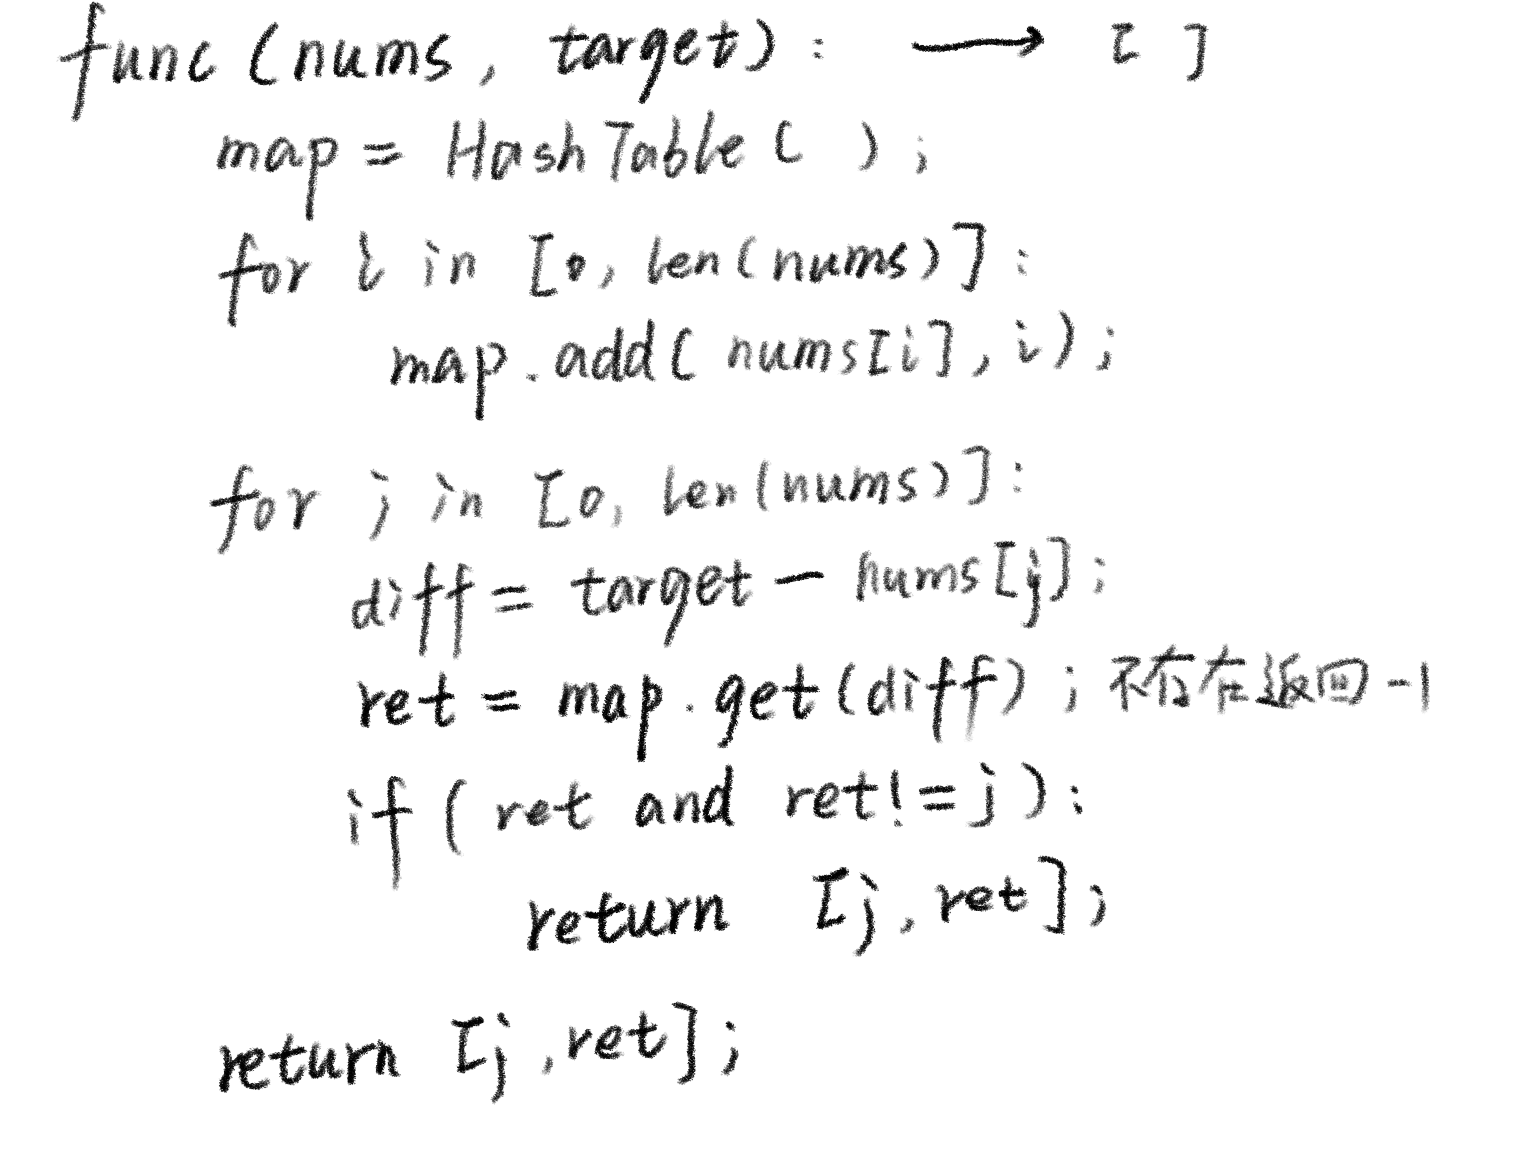 func (nums, target): → [ ]
map = HashTable( );
for i in [0, len(nums)]:
map.add( nums[i], i);
for j in [0, len(nums)]:
diff = target - nums[j];
ret = map.get(diff); 不存在返回-1
if ( ret and ret!=j):
return [j, ret];
return [j, ret];